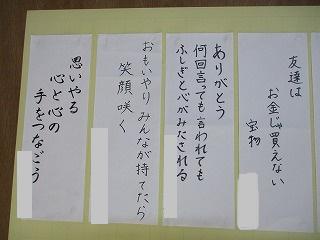 友達は
お金じゃ買えない
宝物
ありがとう
何回言っても言われても
ふしぎと心がみたされる
おもいやり みんなが持てたら
笑顔咲く
思いやる
心と心の
手をつなごう